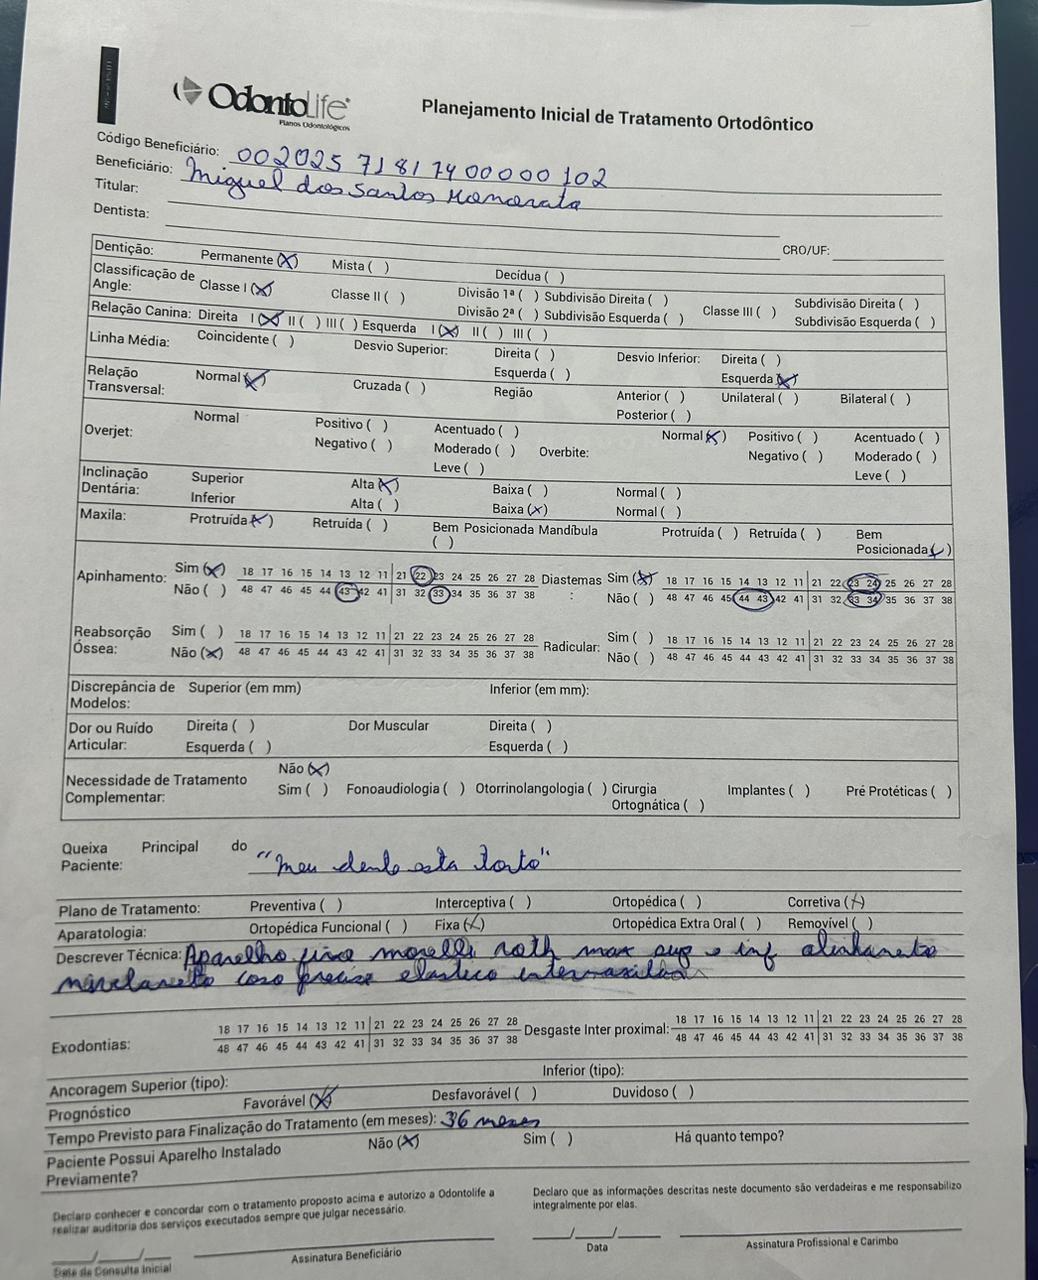 OdontoLife
Planos Odontológicos
Planejamento Inicial de Tratamento Ortodôntico
Código Beneficiário: 002025 718174 00000102
Beneficiário: Miguel dos Santos Honorata
Titular:
Dentista: CRO/UF:
Dentição: Permanente (X) Mista ( ) Decídua ( )
Classificação de Angle: Classe I (X) Classe II ( ) Divisão 1ª ( ) Subdivisão Direita ( ) Classe III ( ) Subdivisão Direita ( )
Divisão 2ª ( ) Subdivisão Esquerda ( ) Subdivisão Esquerda ( )
Relação Canina: Direita I (X) II ( ) III ( ) Esquerda I (X) II ( ) III ( )
Linha Média: Coincidente ( ) Desvio Superior: Direita ( ) Desvio Inferior: Direita ( )
Esquerda ( ) Esquerda (X)
Relação Transversal: Normal (X) Cruzada ( ) Região Anterior ( ) Unilateral ( ) Bilateral ( )
Posterior ( )
Overjet: Normal Positivo ( ) Acentuado ( ) Overbite: Normal (X) Positivo ( ) Acentuado ( )
Negativo ( ) Moderado ( ) Negativo ( ) Moderado ( )
Leve ( ) Leve ( )
Inclinação Dentária: Superior Alta (X) Baixa ( ) Normal ( )
Inferior Alta ( ) Baixa (X) Normal ( )
Maxila: Protruída (X) Retruída ( ) Bem Posicionada ( ) Mandíbula Protruída ( ) Retruída ( ) Bem Posicionada (X)
Apinhamento: Sim (X) 18 17 16 15 14 13 12 11 21 22 23 24 25 26 27 28 Diastemas: Sim (X) 18 17 16 15 14 13 12 11 21 22 23 24 25 26 27 28
Não ( ) 48 47 46 45 44 43 42 41 31 32 33 34 35 36 37 38 Não ( ) 48 47 46 45 44 43 42 41 31 32 33 34 35 36 37 38
Reabsorção Óssea: Sim ( ) 18 17 16 15 14 13 12 11 21 22 23 24 25 26 27 28 Radicular: Sim ( ) 18 17 16 15 14 13 12 11 21 22 23 24 25 26 27 28
Não (X) 48 47 46 45 44 43 42 41 31 32 33 34 35 36 37 38 Não ( ) 48 47 46 45 44 43 42 41 31 32 33 34 35 36 37 38
Discrepância de Modelos: Superior (em mm) Inferior (em mm):
Dor ou Ruído Articular: Direita ( ) Dor Muscular Direita ( )
Esquerda ( ) Esquerda ( )
Necessidade de Tratamento Complementar: Não (X)
Sim ( ) Fonoaudiologia ( ) Otorrinolangologia ( ) Cirurgia Ortognática ( ) Implantes ( ) Pré Protéticas ( )
Queixa Principal do Paciente: "Meu dente esta torto"
Plano de Tratamento: Preventiva ( ) Interceptiva ( ) Ortopédica ( ) Corretiva (X)
Aparatologia: Ortopédica Funcional ( ) Fixa (X) Ortopédica Extra Oral ( ) Removível ( )
Descrever Técnica: Aparelho fixo morelli roth max sup e inf alinhaneto
nivelaneto caso precise elastico intermaxilar
Exodontias: 18 17 16 15 14 13 12 11 21 22 23 24 25 26 27 28 Desgaste Inter proximal: 18 17 16 15 14 13 12 11 21 22 23 24 25 26 27 28
48 47 46 45 44 43 42 41 31 32 33 34 35 36 37 38 48 47 46 45 44 43 42 41 31 32 33 34 35 36 37 38
Ancoragem Superior (tipo): Inferior (tipo):
Prognóstico Favorável (X) Desfavorável ( ) Duvidoso ( )
Tempo Previsto para Finalização do Tratamento (em meses): 36 meses
Paciente Possui Aparelho Instalado Previamente? Não (X) Sim ( ) Há quanto tempo?
Declaro conhecer e concordar com o tratamento proposto acima e autorizo a Odontolife a
realizar auditoria dos serviços executados sempre que julgar necessário.
Declaro que as informações descritas neste documento são verdadeiras e me responsabilizo
integralmente por elas.
__/__/__ Data da Consulta Inicial Assinatura Beneficiário __/__/__ Data Assinatura Profissional e Carimbo